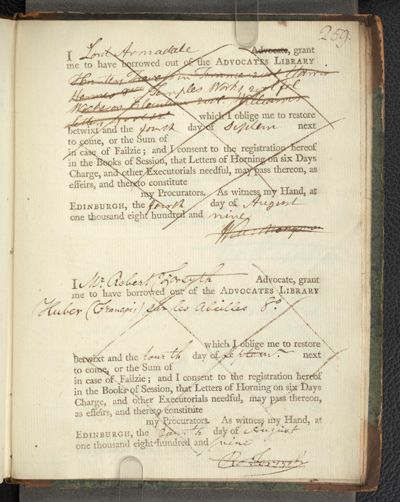 259.
I Lord Armadale Advocate, grant
me to have borrowed out of the ADVOCATES LIBRARY
Travels in France 2 vol Harris
Hermes 8vo Works 2 vol fol
2 vol Williams
which I oblige me to restore
betwixt and the fourth day of Septem next
to come, or the Sum of
in case of Failzie; and I consent to the registration hereof
in the Books of Session, that Letters of Horning on six Days
Charge, and other Executorials needful, may pass thereon, as
effeirs, and thereto constitute
my Procurators. As witness my Hand, at
EDINBURGH, the fourth day of August
one thousand eight hundred and nine
I Mr. Robert Forsyth Advocate, grant
me to have borrowed out of the ADVOCATES LIBRARY
Huber (François) sur les Abeilles 8o
which I oblige me to restore
betwixt and the fourth day of next
to come, or the Sum of
in case of Failzie; and I consent to the registration hereof
in the Books of Session, that Letters of Horning on six Days
Charge, and other Executorials needful, may pass thereon,
as effeirs, and thereto constitute
my Procurators. As witness my Hand, at
EDINBURGH, the fourth day of August
one thousand eight hundred and nine
Ro. Forsyth